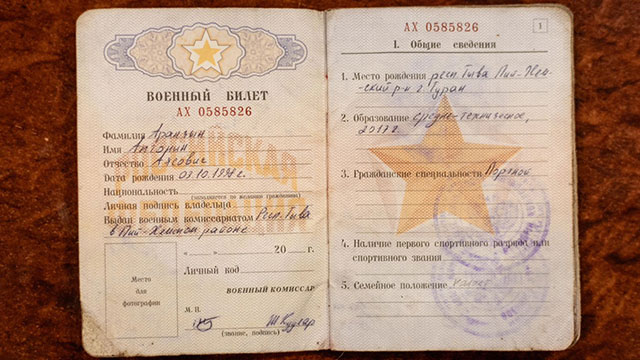 ВОЕННЫЙ БИЛЕТ
АХ 0585826
Фамилия
Имя
Отчество
Дата рождения 03.10.199 г.
Национальность
(заполняется по желанию гражданина)
Личная подпись владельца
Выдан военным комиссариатом Респ. Тива
в Пий-Хемском районе
Место
для
фотографии
„ “ 20 г.
Личный код
ВОЕННЫЙ КОМИССАР
М. П.
(звание, подпись)
АХ 0585826
1
I. Общие сведения
1. Место рождения респ Тива Пий-Хем-
ский р-н г. Туран
2. Образование средне-техническое,
2017 г.
3. Гражданские специальности Портной
4. Наличие первого спортивного разряда или
спортивного звания
5. Семейное положение холост